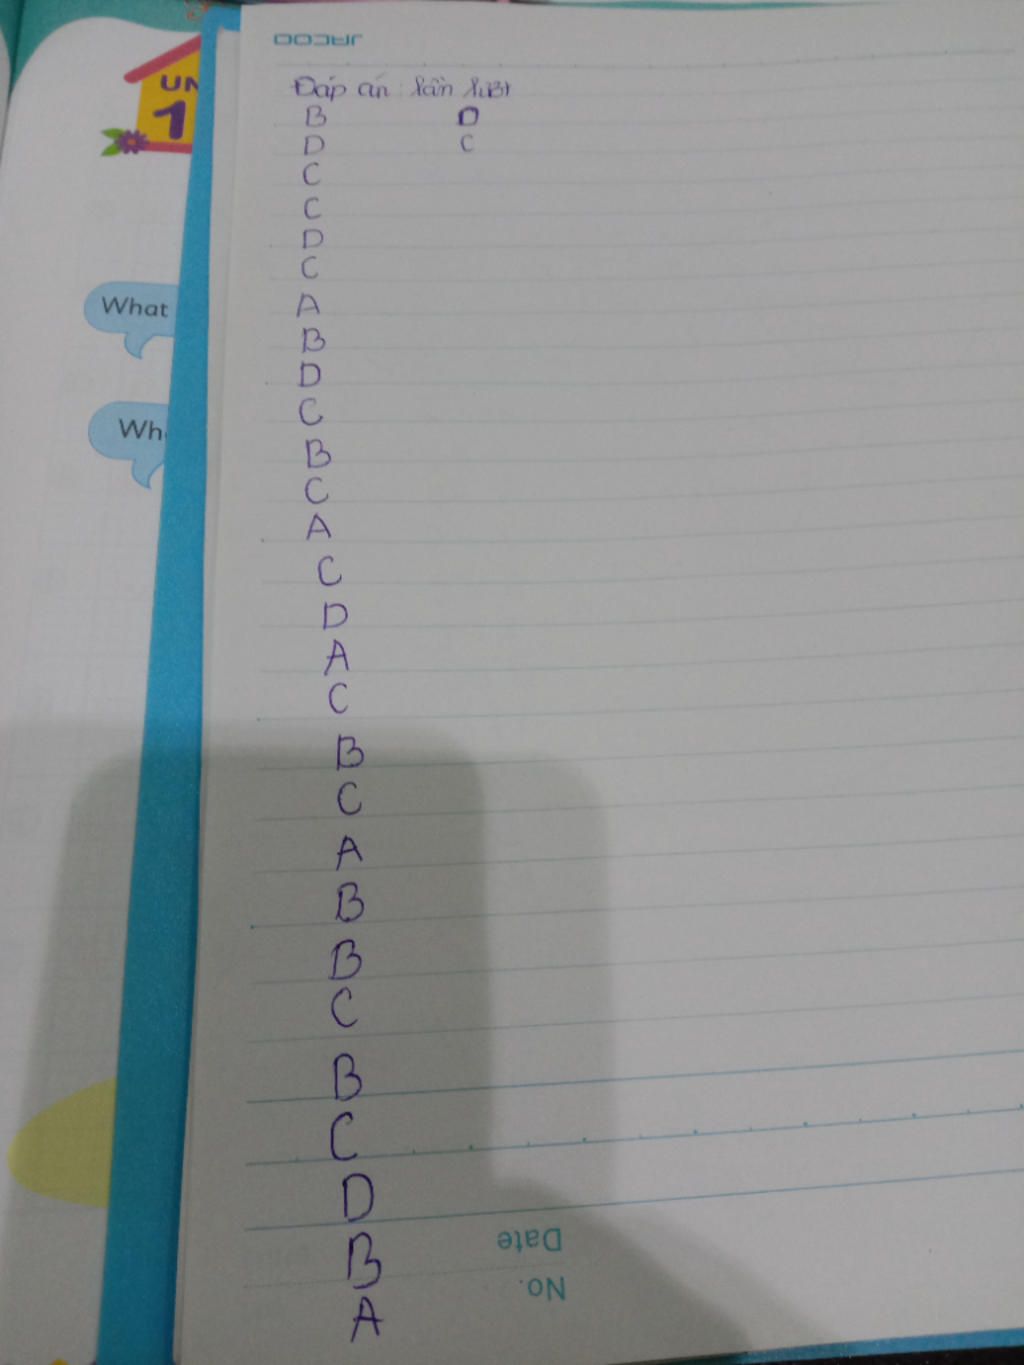 JACOO
UN
1
What
Wh
Đáp án lần lượt
B
D
C
C
D
C
A
B
D
C
B
C
A
C
D
A
C
B
C
A
B
B
C
B
C
D
B
A
D
C
Date
No.